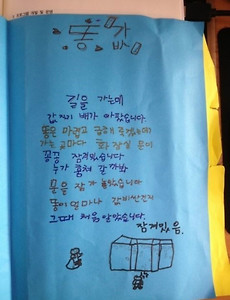 똥가방
길을 가는데
갑자기 배가 아팠습니다
똥은 마렵고 급해 죽겠는데
가는 곳마다 화장실 문이
꽁꽁 잠겨있습니다
누가 훔쳐 갈까봐
문을 잠가 놓았습니다
똥이 얼마나 값비싼건지
그때 처음 알았습니다.
잠겨있음.